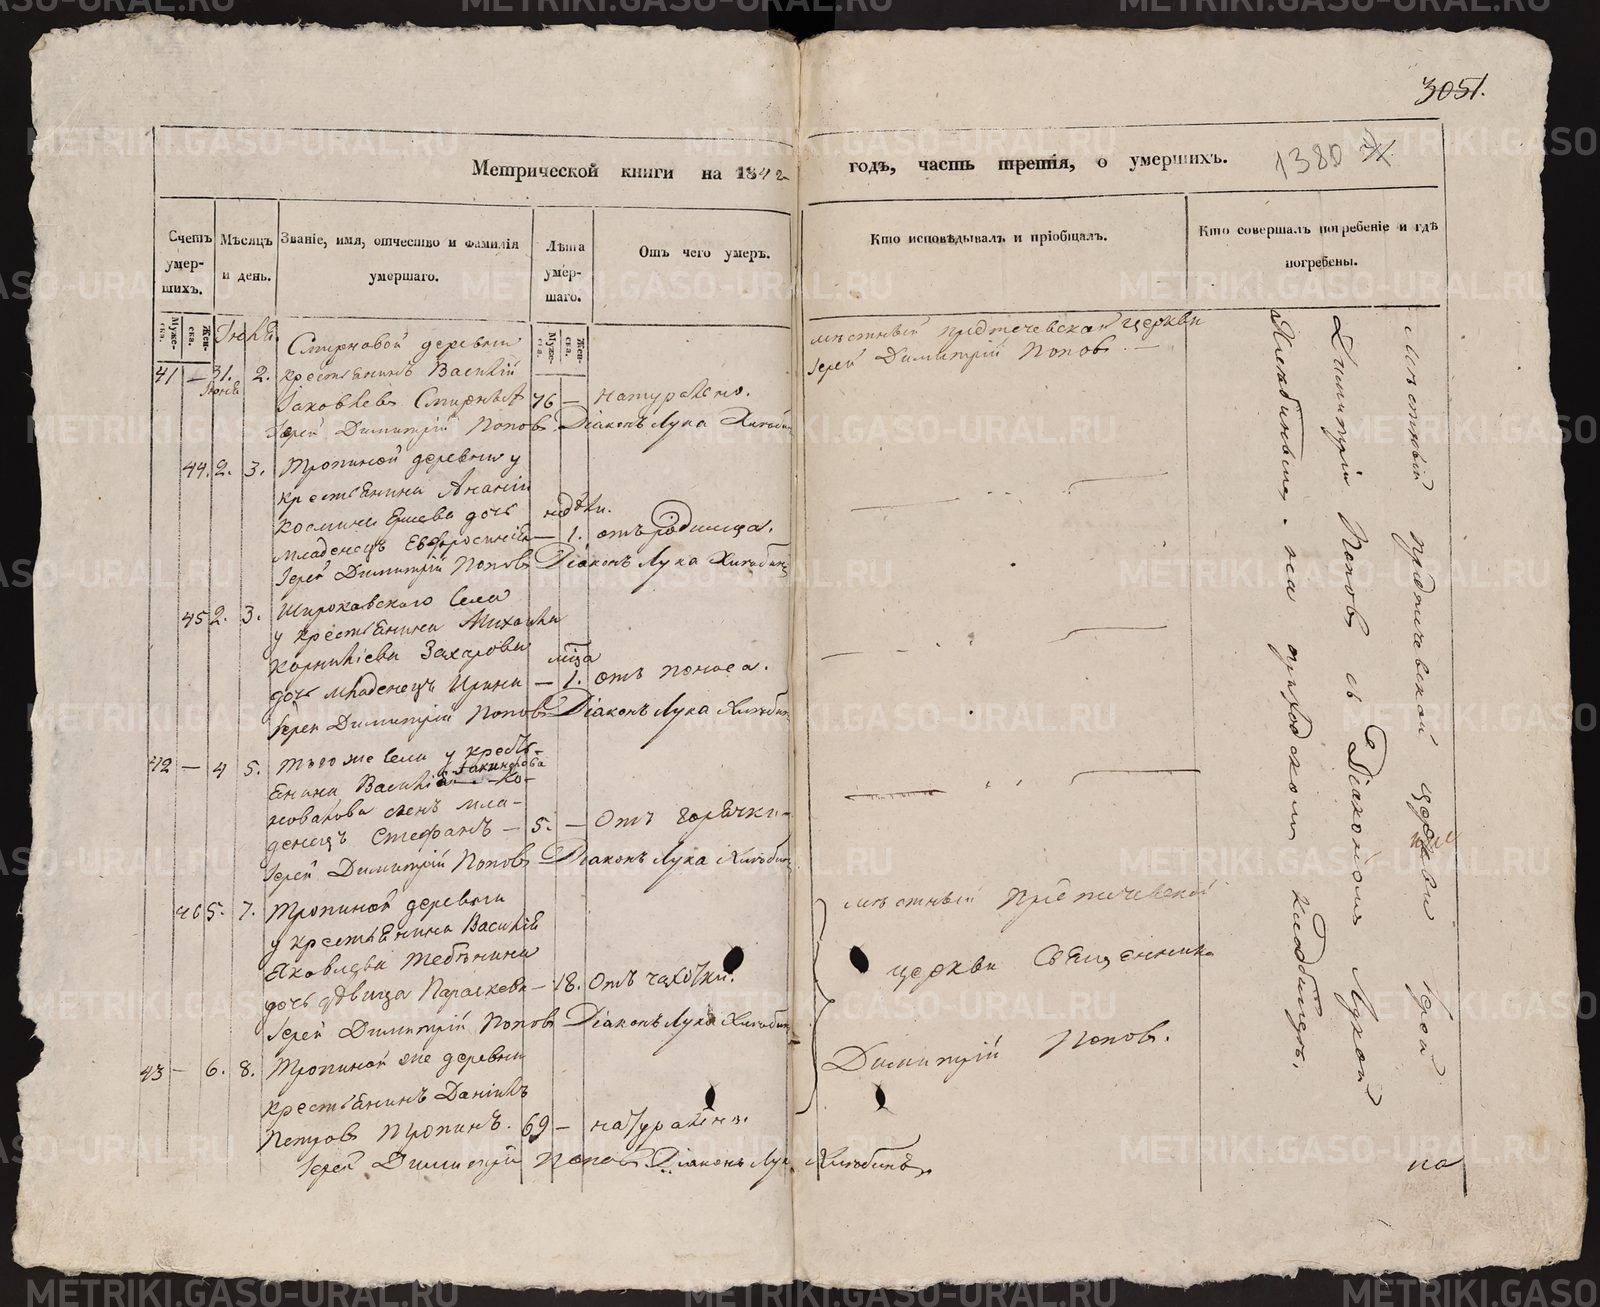 3051.
Метрической книги на 1842 годъ, часть третія, о умершихъ.
1380
Счетъ умер-шихъ.
Муже-ска.
Жен-ска.
Мѣсяцъ и день.
Званіе, имя, отчество и фамилія умершаго.
Лѣта умер-шаго.
Муже-ска.
Жен-ска.
Отъ чего умеръ.
Кто исповѣдывалъ и пріобщалъ.
Кто совершалъ погребеніе и гдѣ погребены.
Смирновой деревни
41 — 31. 2. крестьянинъ Василій
Іюня
Іаковлевъ 76 — натурально.
Іерей Димитрій Поповъ Діаконъ Лука
44. 2. 3. Тропиной деревни у
крестьянина Ананіи
Космина дочь недѣли.
младенецъ Евфросинія — 1. отъ родимца.
Іерей Димитрій Поповъ Діаконъ Лука
45 2. 3. Широковскаго села
у крестьянина Михаила
Корниліева Захарова мѣсца
дочь младенецъ Ирина — 1. отъ поноса.
Іерей Димитрій Поповъ Діаконъ Лука
42 — 4 5. Того же села у кресть-
янина Василія
сынъ мла-
денецъ Стефанъ — 5. — Отъ горячки
Іерей Димитрій Поповъ Діаконъ Лука
46 5. 7. Тропиной деревни
у крестьянина Василія
Яковлева
дочь дѣвица Параскева — 18. Отъ чахотки.
Іерей Димитрій Поповъ Діаконъ Лука
43 — 6. 8. Тропиной же деревни
крестьянинъ Даніилъ
Петровъ Тропинъ. 69 — натурально.
Іерей Димитрій Поповъ Діаконъ Лука
мѣстный предтечевской церкви
Іерей Димитрій Поповъ
мѣстный предтечевской
церкви Священникъ
Димитрій Поповъ.
Мѣстный предтечевской церкви Іерей
Димитрій Поповъ съ Діакономъ Лукой
на приходскомъ кладбищѣ.
на
METRIKI.GASO-URAL.RU